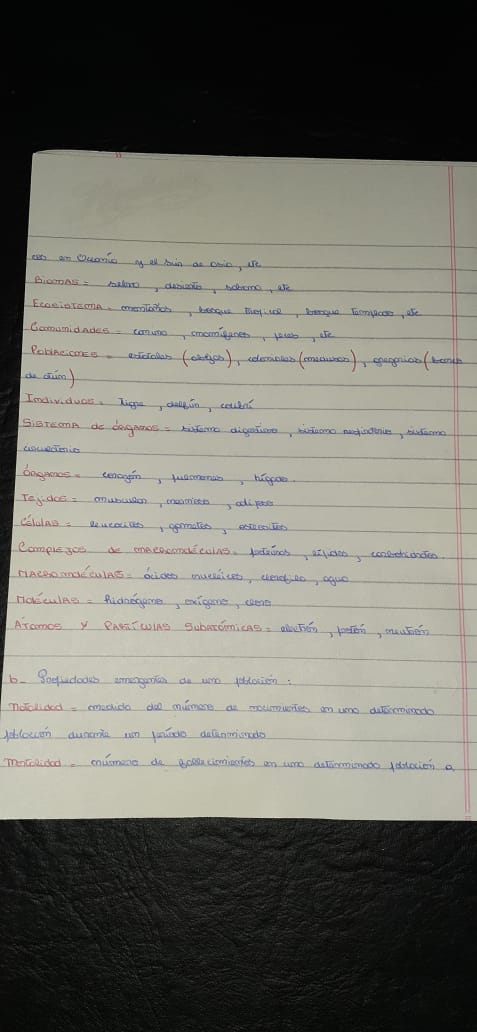 en Oceanía y el sur de Asia, etc
Biomas = selva, desierto, sabana, etc
Ecosistema = montañas, bosque tropical, bosque templado, etc
Comunidades = etc
Poblaciones = estatales (abejas), coloniales (medusas), gregarias (banco
de atún)
Individuos = Tigre, delfín, colibrí
Sistema de órganos = sistema digestivo, sistema respiratorio, sistema
circulatorio
Órganos = corazón, pulmones, hígado.
Tejidos = muscular, nervioso, adiposo
Células = leucocitos, gametos, osteocitos
Complejos de macromoléculas = proteínas, lípidos, carbohidratos.
Macromoléculas = ácidos nucleicos, agua
Moléculas = hidrógeno, oxígeno,
Átomos y partículas subatómicas = electrón, protón, neutrón
b- Propiedades emergentes de una población:
Natalidad = medida del número de nacimientos en una determinada
población durante un período determinado
Mortalidad = número de fallecimientos en una determinada población a